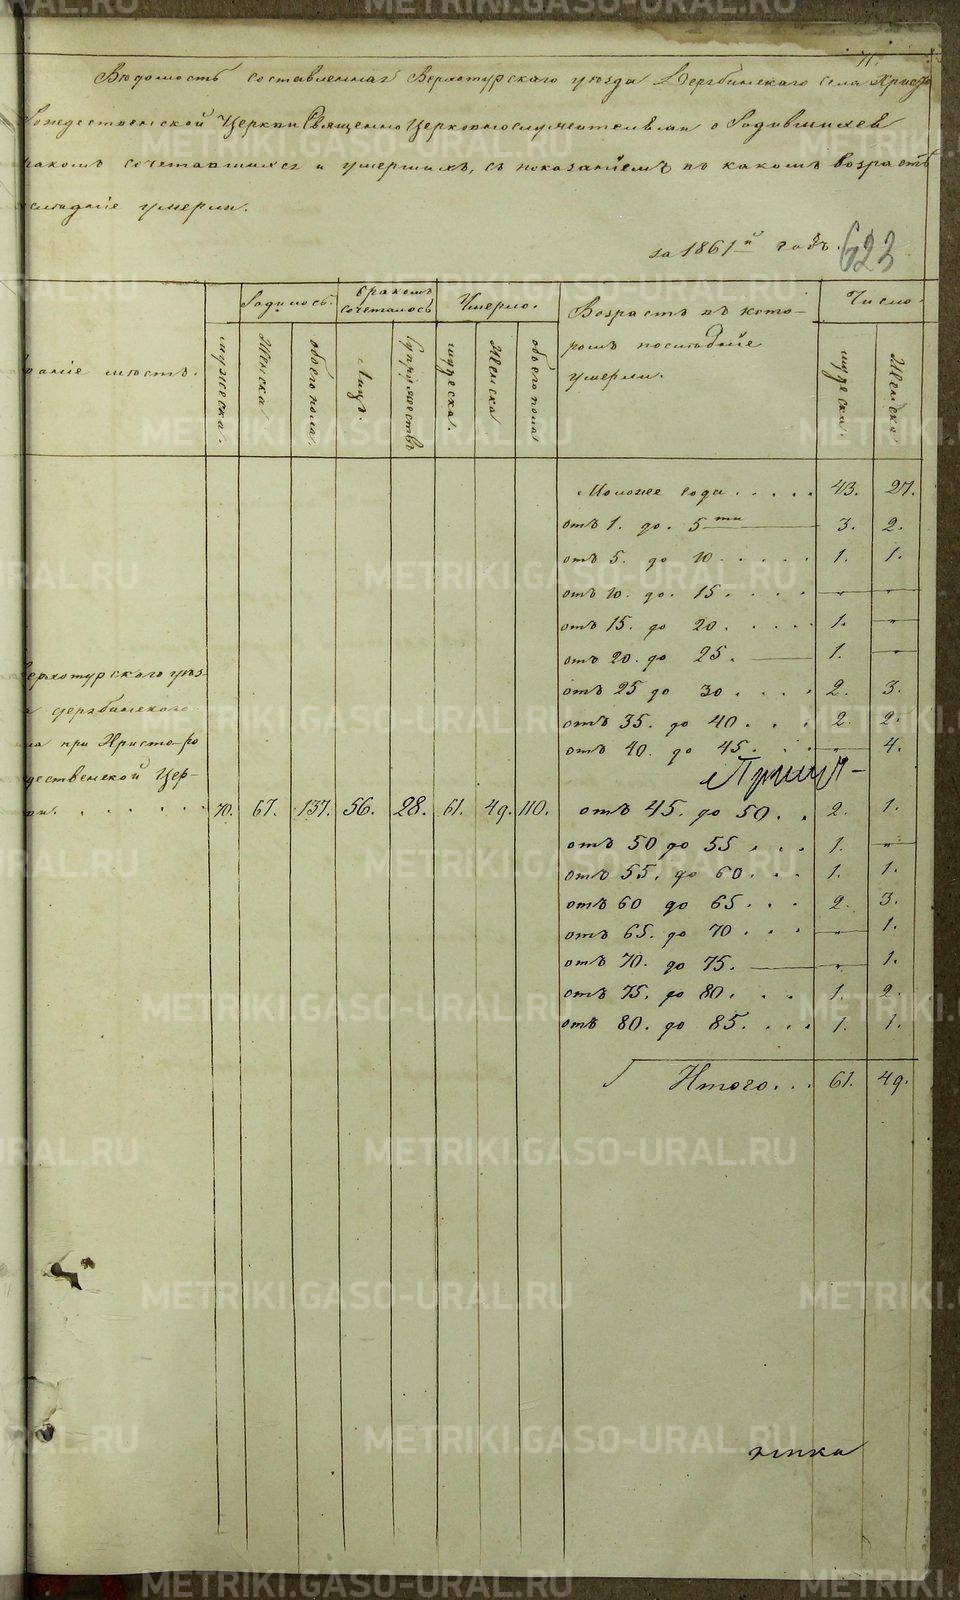 Вѣдомость составленная Верхотурскаго уѣзда Дерябинскаго села Христо
рождественской Церкви Священно Церковнослужителями о Родившихся
ракомъ сочетавшихся и умершихъ, съ показаніемъ въ какомъ возрастѣ
слѣдніе умерли.
за 1861й годъ.
623
ваніе мѣстъ.
Родилось.
бракомъ сочеталось
Умерло.
Возрастъ въ кото-
ромъ послѣдніе
умерли.
Число
мужеска.
Женска
обоего пола.
Лицъ.
Супружествъ
мужеска.
Женска
обоего пола
мужеска.
Женска
Моложе года . . . . . 43. 27.
отъ 1. до. 5ти 3. 2.
отъ 5. до 10 . . . . . 1. 1.
отъ 10. до. 15 . . . . „ „
отъ 15. до 20. . . . . 1. „
отъ 20. до 25. 1. „
отъ 25 до 30 . . . . 2. 3.
отъ 35. до 40 . . . 2. 2.
отъ 40. до 45. . . „ 4.
ерхотурскаго уѣз-
а дерябинскаго
ла при Христо-ро
дественской Цер-
кви. . . . . . . 70. 67. 137. 56. 28. 61. 49. 110.
отъ 45. до 50. . 2. 1.
отъ 50 до 55 . . . 1. „
отъ 55. до 60. . . 1. 1.
отъ 60 до 65. . . 2. 3.
отъ 65. до 70 . . . „ 1.
отъ 70. до 75. „ 1.
отъ 75. до 80. . . 1. 2.
отъ 80. до 85. . . . 1. 1.
Итого. . . 61. 49.
METRIKI.GASO-URAL.RU